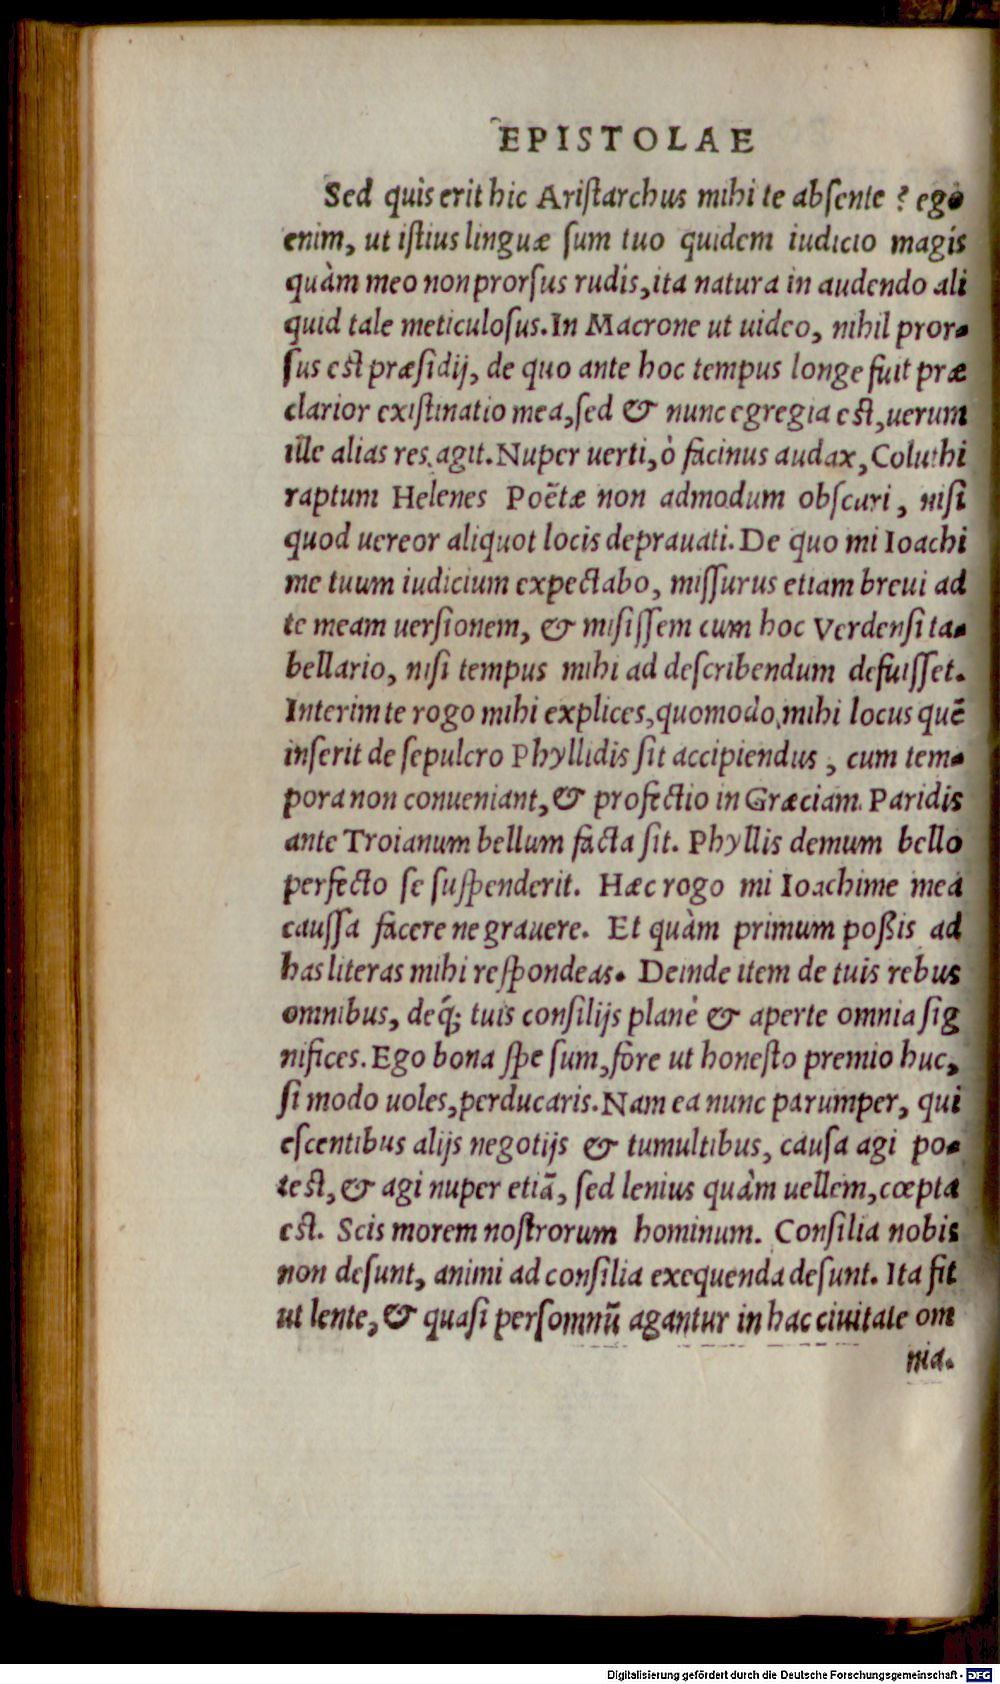 EPISTOLAE
Sed quis erit hic Aristarchus mihi te absente? ego
enim, ut istius linguæ sum tuo quidem iudicio magis
quàm meo non prorsus rudis, ita natura in audendo ali
quid tale meticulosus. In Macrone ut uideo, nihil pror-
sus est præsidij, de quo ante hoc tempus longe fuit præ
clarior existimatio mea, sed & nunc egregia est, uerum
ille alias res agit. Nuper uerti, ò facinus audax, Coluthi
raptum Helenes Poëtæ non admodum obscuri, nisi
quod uereor aliquot locis deprauati. De quo mi Ioachi
me tuum iudicium expectabo, missurus etiam breui ad
te meam uersionem, & misissem cum hoc Verdensi ta-
bellario, nisi tempus mihi ad describendum defuisset.
Interim te rogo mihi explices, quomodo mihi locus quẽ
inserit de sepulcro Phyllidis sit accipiendus, cum tem-
pora non conueniant, & profectio in Græciam Paridis
ante Troianum bellum facta sit. Phyllis demum bello
perfecto se suspenderit. Hæc rogo mi Ioachime mea
caussa facere ne grauere. Et quàm primum poßis ad
has literas mihi respondeas. Deinde item de tuis rebus
omnibus, deq́; tuis consilijs planè & aperte omnia sig
nifices. Ego bona spe sum, fore ut honesto premio huc,
si modo uoles, perducaris. Nam ea nunc parumper, qui
escentibus alijs negotijs & tumultibus, causa agi po-
test, & agi nuper etiã, sed lenius quàm uellem, cœpta
est. Scis morem nostrorum hominum. Consilia nobis
non desunt, animi ad consilia exequenda desunt. Ita fit
ut lente, & quasi per somnũ agantur in hac ciuitate om
nia.
Digitalisierung gefördert durch die Deutsche Forschungsgemeinschaft - DFG